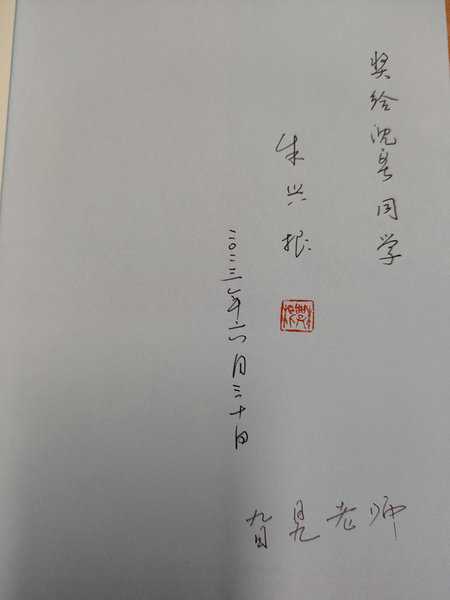 奖给沈同学
朱兴根
二〇二三年六月三十日
旮旯老师